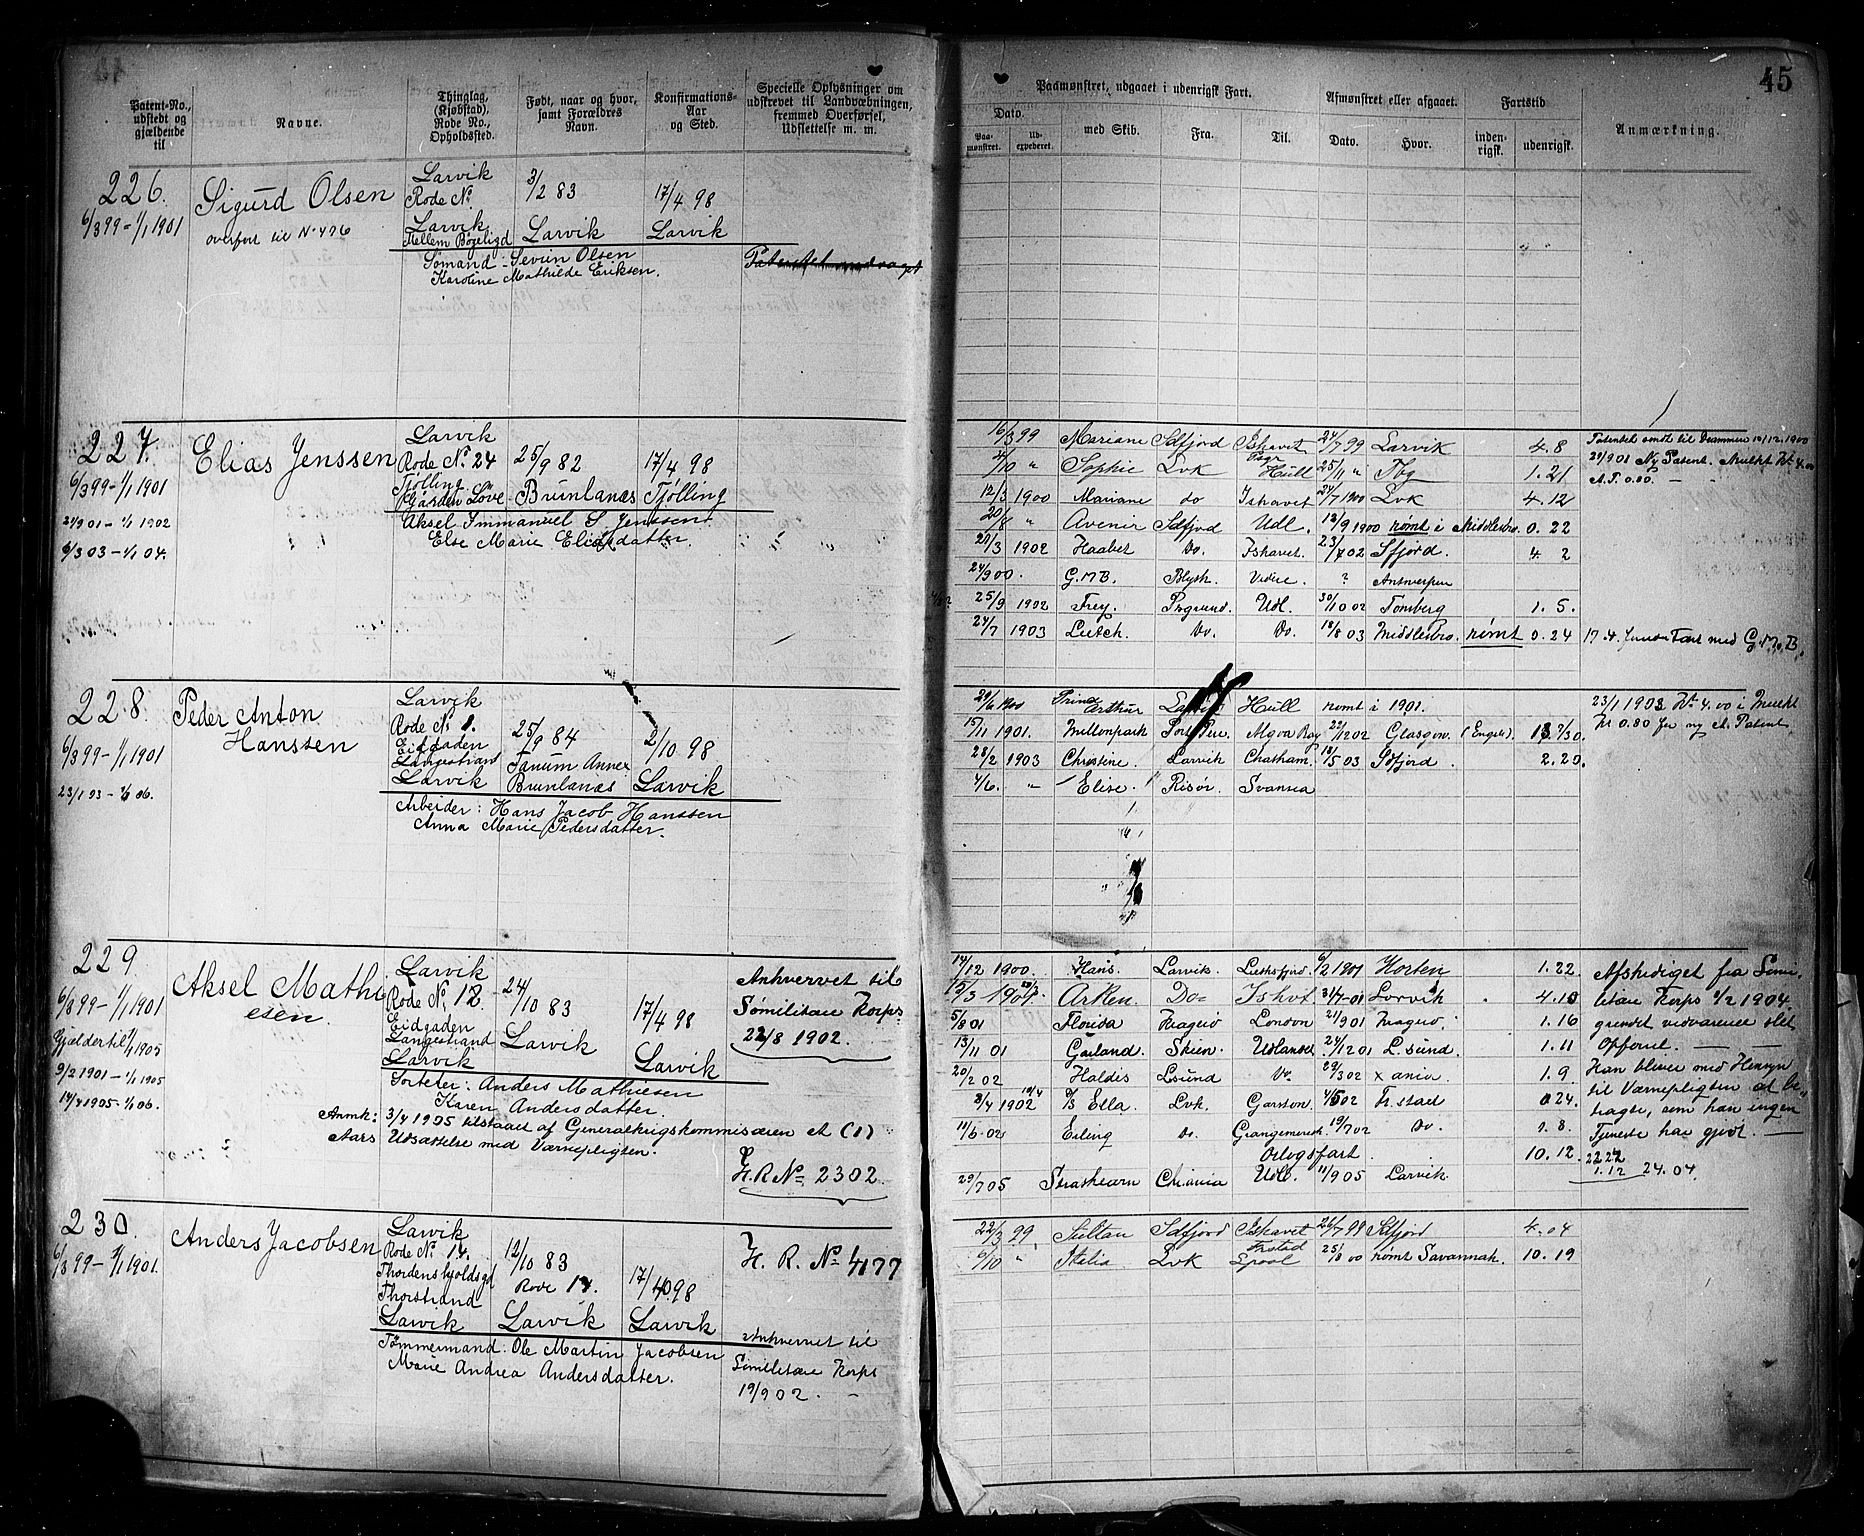 45
Patent-No., udstedt og gjældende til
Navne.
Thinglag, (Kjøbstad), Rode No., Opholdssted.
Født, naar og hvor, samt Forældres Navn.
Konfirmations-Aar og Sted.
Specielle Oplysninger om udskrevet til Landværbningen, fremmed Overførsel, Udslettelse m. m.
Paamønstret, udgaaet i udenrigsk Fart.
Dato.
Paa-mønstret.
Ud-expederet.
med Skib.
Fra.
Til.
Afmønstret eller afgaaet.
Dato.
Hvor.
Fartstid
inden-rigsk.
udenrigsk.
Anmærkning.
226.
6/3 99 - 1/1 1901
Sigurd Olsen
overført til No 496
Larvik
Rode No.
Larvik
Mellem Bøgeligd
3/2 83
Larvik
17/4 98
Larvik
Sømand - Sevrin Olsen
Karoline Mathilde Eriksen.
227.
6/3 99 - 1/1 1901
27/9 01 - 1/1 1902
6/3 03 - 1/1 04.
Elias Jenssen
Larvik
Rode No. 24
Tjølling
Gården Löve
25/9 82
Brunlanæs
17/4 98
Tjølling
Aksel Immanuel S. Jenssen
Else Marie Eliasdatter.
16/3 99 Mariane Sdfjord Ishavet 24/7 99 Larvik 4.8
4/10 " Sophie Lvk Hull 25/11 " Tbg 1.21
12/3 1900 Mariane do Ishavet 24/7 1900 Lvk 4.12
20/8 " Avenir Sdfjord Udl. 12/9 1900 rømt i Middlesbro. 0.22
21/3 1902 Haabet Do. Ishavet. 23/7 02 Sfjord. 4 2
24/9 00. G.M.B. Vidire. ? Antwerpen
25/9 1902 Frey. Prgrund. Udl. 30/10 02 Tonsberg 1. 5.
24/7 1903 Do. Do. 18/8 03 Middlesbro. rømt 0.24
Patentet omst til Drammen 10/12 1900
27/9 01 Ny Patent. Mulkt Kr 4.00
A.P. 0.80. —
17.4. Fart med G.M.B.
228.
6/3 99 - 1/1 1901
23/1 03 - 1/1 06.
Peder Anton
Hanssen
Larvik
Rode No 8.
Eidgaden
Langestrand
Larvik
25/9 84
Tanum Annex
Brunlanæs
2/10 98
Larvik
Arbeider: Hans Jacob Hanssen
Anna Marie Pedersdatter.
29/6 1900 Prince Arthur Larvik Hull rømt i 1901.
15/11 1901. Millonpark Algoa Bay 22/12 02 Glasgow. (Engelsk)
28/2 1903 Christine. Larvik Chatham. 18/5 03 Sdfjord. 2.20.
4/6. " Elise. Risør. Svansea
23/1 1903 Kr. 4.00 i Mulkt
Kr 0.80 for ny A. Patent.
229
6/3 99 - 1/1 1901
Gjælder til 1/1 1905
9/2 1901 - 1/1 1905
14/4 1905 - 1/1 06.
Aksel Mathi
esen.
Larvik
Rode No. 12
Eidgaden
Langestrand
Larvik
24/10 83
Larvik
17/4 98
Larvik
Anhvervet til
Sømilitære Korps
22/8 1902.
Sorteter: Anders Mathiesen
Karen Andersdatter.
Anmk: 3/4 1905 tilstaaet af Generalkrigskommisæren et (1)
Aars Udsættelse med Værnepligten.
H.R.No 2302.
14/12 1900. Hans. Larvik. 6/2 1901 Horten 1.22.
15/3 1901 Arken. Do= Ishvt 31/7-01 Larvik 4.10
5/8 01 Florida Kragerø London 21/9 01 Kragerø. 1.16
13/11 01 Garland. Skien. Udlandet 24/12 01 L.sund. 1.11
20/2 02 Haldis Lsund Do. 29/3 02 Xania. 1.9.
8/4 1902 D/S Ella. Lvk. Garston. 4/5 02 Fr.stad 0 24.
11/6-02 Erling Do. Grangemouth 19/7 02 Do. 1. 8.
Orlogsfart. 10.12.
29/7 05 Strathearn Chr.ania Udl. 11/9 05 Larvik.
Afskediget fra Sømi-
litære Korps 1/2 1904
grundet vedvarende slet
Opførsel. —
Han bliver med Hensyn
til Værnepligten at be-
tragte, som han ingen
Tjeneste har gjort. —
2222
1.12 24.04.
230.
6/3 99 - 1/1 1901.
Anders Jacobsen
Larvik
Rode No 14.
Thordenskjoldsgd
Thorstrand
Larvik
12/10 83
Larvik
17/4 98
Larvik
H. R. No 4177
Anhvervet til
Sømilitære Korps
19/9 02.
Tømmermand: Ole Martin Jacobsen
Marie Andrea Andersdatter.
22/3 99 Sultan Sdfjord Ishavet 26/7 99 Sdfjord 4.04
6/10 " Italia Lvk Frstad Lpool 25/8 00 rømt Savannah. 10.19